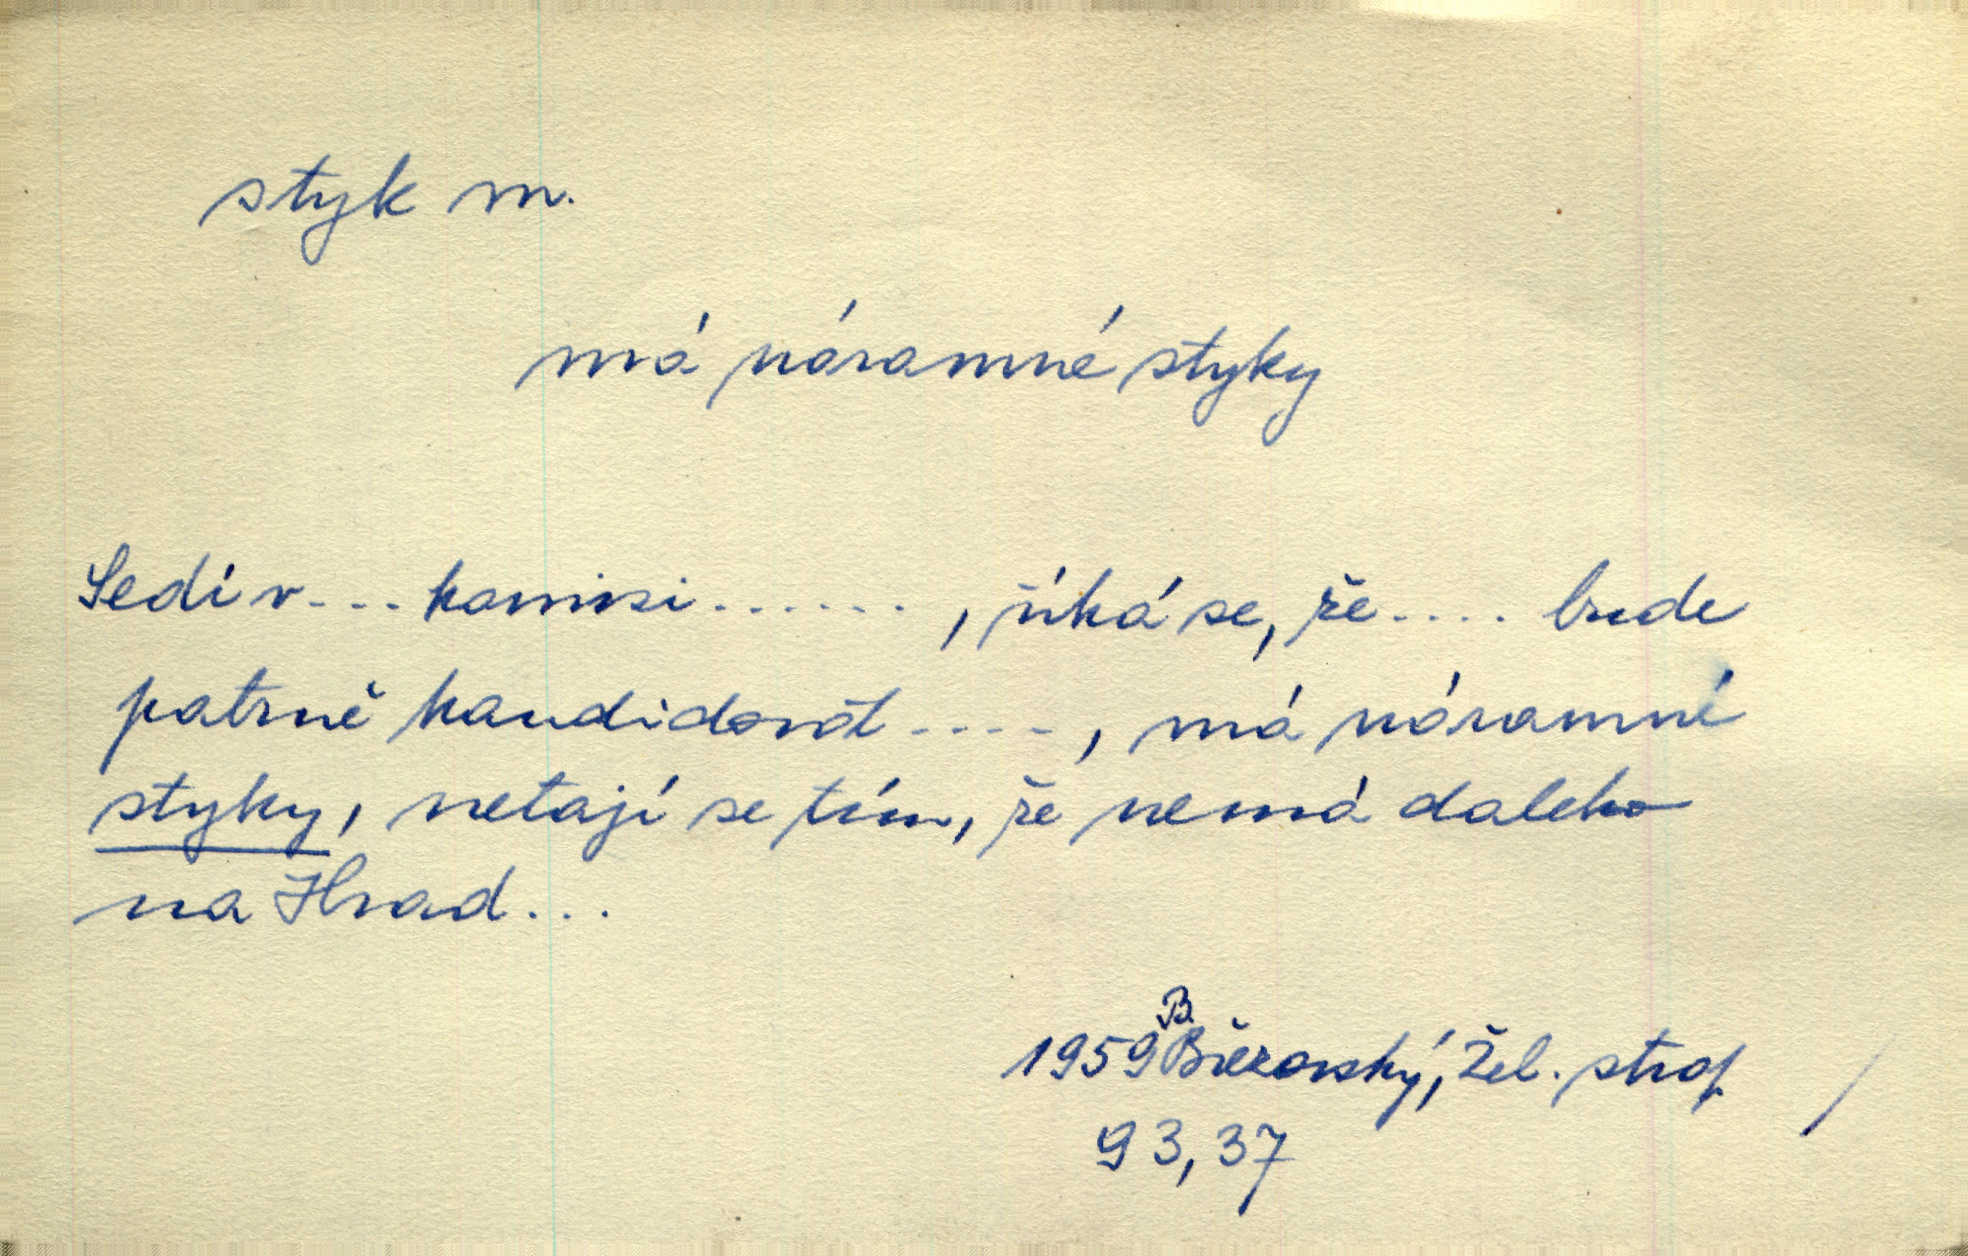 styk m.
má náramné styky
Sedí v... komisi......, říká se, že.... bude
patrně kandidovat....., má náramné
styky, netají se tím, že nemá daleko
na Hrad...
B.
1959 Březovský, Žel. strop
93,37